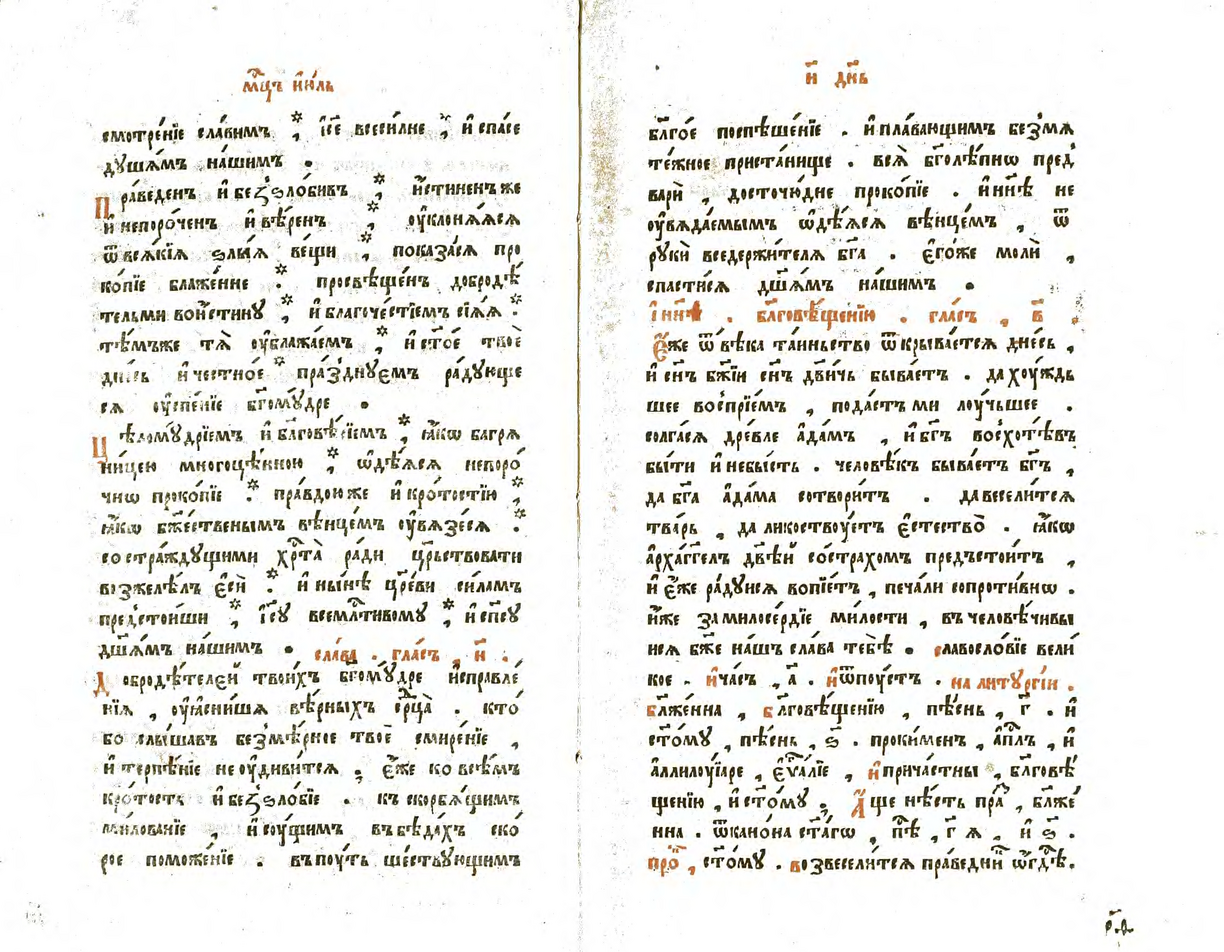 мⷭ҇цъ їю́ль
смотре́нїе сла́вимъ * , їсе всеси́лне * , и҆ спасе
душа́мъ на́шимъ .
Пра́веденъ и҆ беꙁѕло́бивъ * , и҆́стиненъ же
и҆ непоро́ченъ и҆ вѣ́ренъ * , ᲂу҆клоня́яся
ѿ вся́кїя ѕлы́я ве́щи * , показа́ся про
ко́пїе блаже́нне * . просвѣще́нъ добродѣ́
тельми вои́стину * , и҆ благоче́стїемъ сїя́я * .
тѣ́мъже тѧ̀ ᲂу҆блажа́емъ * , и҆ ст҃о́е твоѐ
дне́сь и҆ честно́е * пра́зднуемъ ра́дующе
ся ᲂу҆спе́нїе бг҃ому́дре .
Цѣлому́дрїемъ и҆ бл҃гове́рїемъ * , ꙗ҆́кѡ багря
ни́цею многоцѣ́нною * , ѡ҆дѣ́яся непоро́
чнѡ проко́пїе * . пра́вдою же и҆ кро́тостїю * ,
ꙗ҆́кѡ бж҃е́ственымъ вѣнце́мъ ᲂу҆вязе́ся * .
со стра́ждущими хрⷭ҇та̀ ра́ди црⷭ҇твовати
возжелѣ́лъ є҆сѝ * . и҆ ны́нѣ цр҃е́ви си́ламъ
предстои́ши * , і҆с҃у всемлⷭ҇тивому * , и҆ сп҃су
дш҃а́мъ на́шимъ . сла́ва . гла́съ , и҃ .
Добродѣ́телей твои́хъ бг҃ому́дре и҆справле́
нїя , ᲂу҆ясни́ша вѣ́рныхъ срⷣца̀ . кто́
бо слы́шавъ безмѣ́рное твоѐ смире́нїе ,
и҆ терпѣ́нїе не ᲂу҆диви́тся , є҆́же ко всѣ́мъ
кро́тость и҆ беꙁѕло́бїе . къ скорбя́щимъ
ми́лованїе , и҆ су́щимъ въ бѣда́хъ ско́
рое поможе́нїе . въ пу́ть ше́ствующимъ
и҃ дн҃ь
бл҃го́е поспѣше́нїе . и҆ пла́вающимъ безмя
те́жное приста́нище . вся̀ бг҃олѣ́пнѡ пред
варѝ , досточю́дне проко́пїе . и҆ ны́нѣ не
ᲂу҆вяда́емымъ ѡ҆дѣ́яся вѣнце́мъ , ѿ
рукѝ вседержи́теля бг҃а . є҆го́же молѝ ,
спасти́ся дш҃а́мъ на́шимъ .
И нн҃ѣ . бл҃говѣ́щенїю . гла́съ , в҃ .
Є҆́же ѿ вѣ́ка та́иньство ѿкрыва́ется дне́сь ,
и҆ сн҃ъ бж҃їи сн҃ъ дв҃ичь быва́етъ . да ху́ждь
шее воспрїе́мъ , пода́стъ ми лу́чьшее .
солга́ся дре́вле а҆да́мъ , и҆ бг҃ъ восхотѣ́въ
бы́ти и҆ небы́сть . человѣ́къ быва́етъ бг҃ъ ,
да бг҃а а҆да́ма сотвори́тъ . да весели́тся
тва́рь , да ликоствуетъ є҆стество̀ . ꙗ҆́кѡ
а҆рха́ггелъ дв҃ѣй со стра́хомъ предъстои́тъ ,
и҆ є҆́же ра́дуися вопїе́тъ , печа́ли сопроти́внѡ .
и҆́же за милосе́рдїе ми́лости , въ человѣ́чивы
ися бж҃е на́шъ сла́ва тебѣ̀ . славосло́вїе вели́
кое . и҆ ча́съ , а҃ . и҆ ѿпу́стъ . на литургі́и .
бл҃же́нна , бл҃говѣ́щенїю , пѣ́снь , г҃ . и҆
ст҃о́му , пѣ́снь , ѕ҃ . проки́менъ , а҆пⷭ҇лъ , и҆
а҆ллилуїаре , є҆ѵⷢ҇алїе , и҆ прича́стны , бл҃говѣ́
щенїю , и҆ ст҃о́му . А҆́ще нѣ́сть пра́ , бл҃же́
нна . ѿ кано́на ст҃а́гѡ , пѣ́ , г҃ я , и҆ ѕ҃ .
про́ , ст҃о́му . возвесели́тся пра́ведни ѡ҆ гдⷭ҇ѣ .